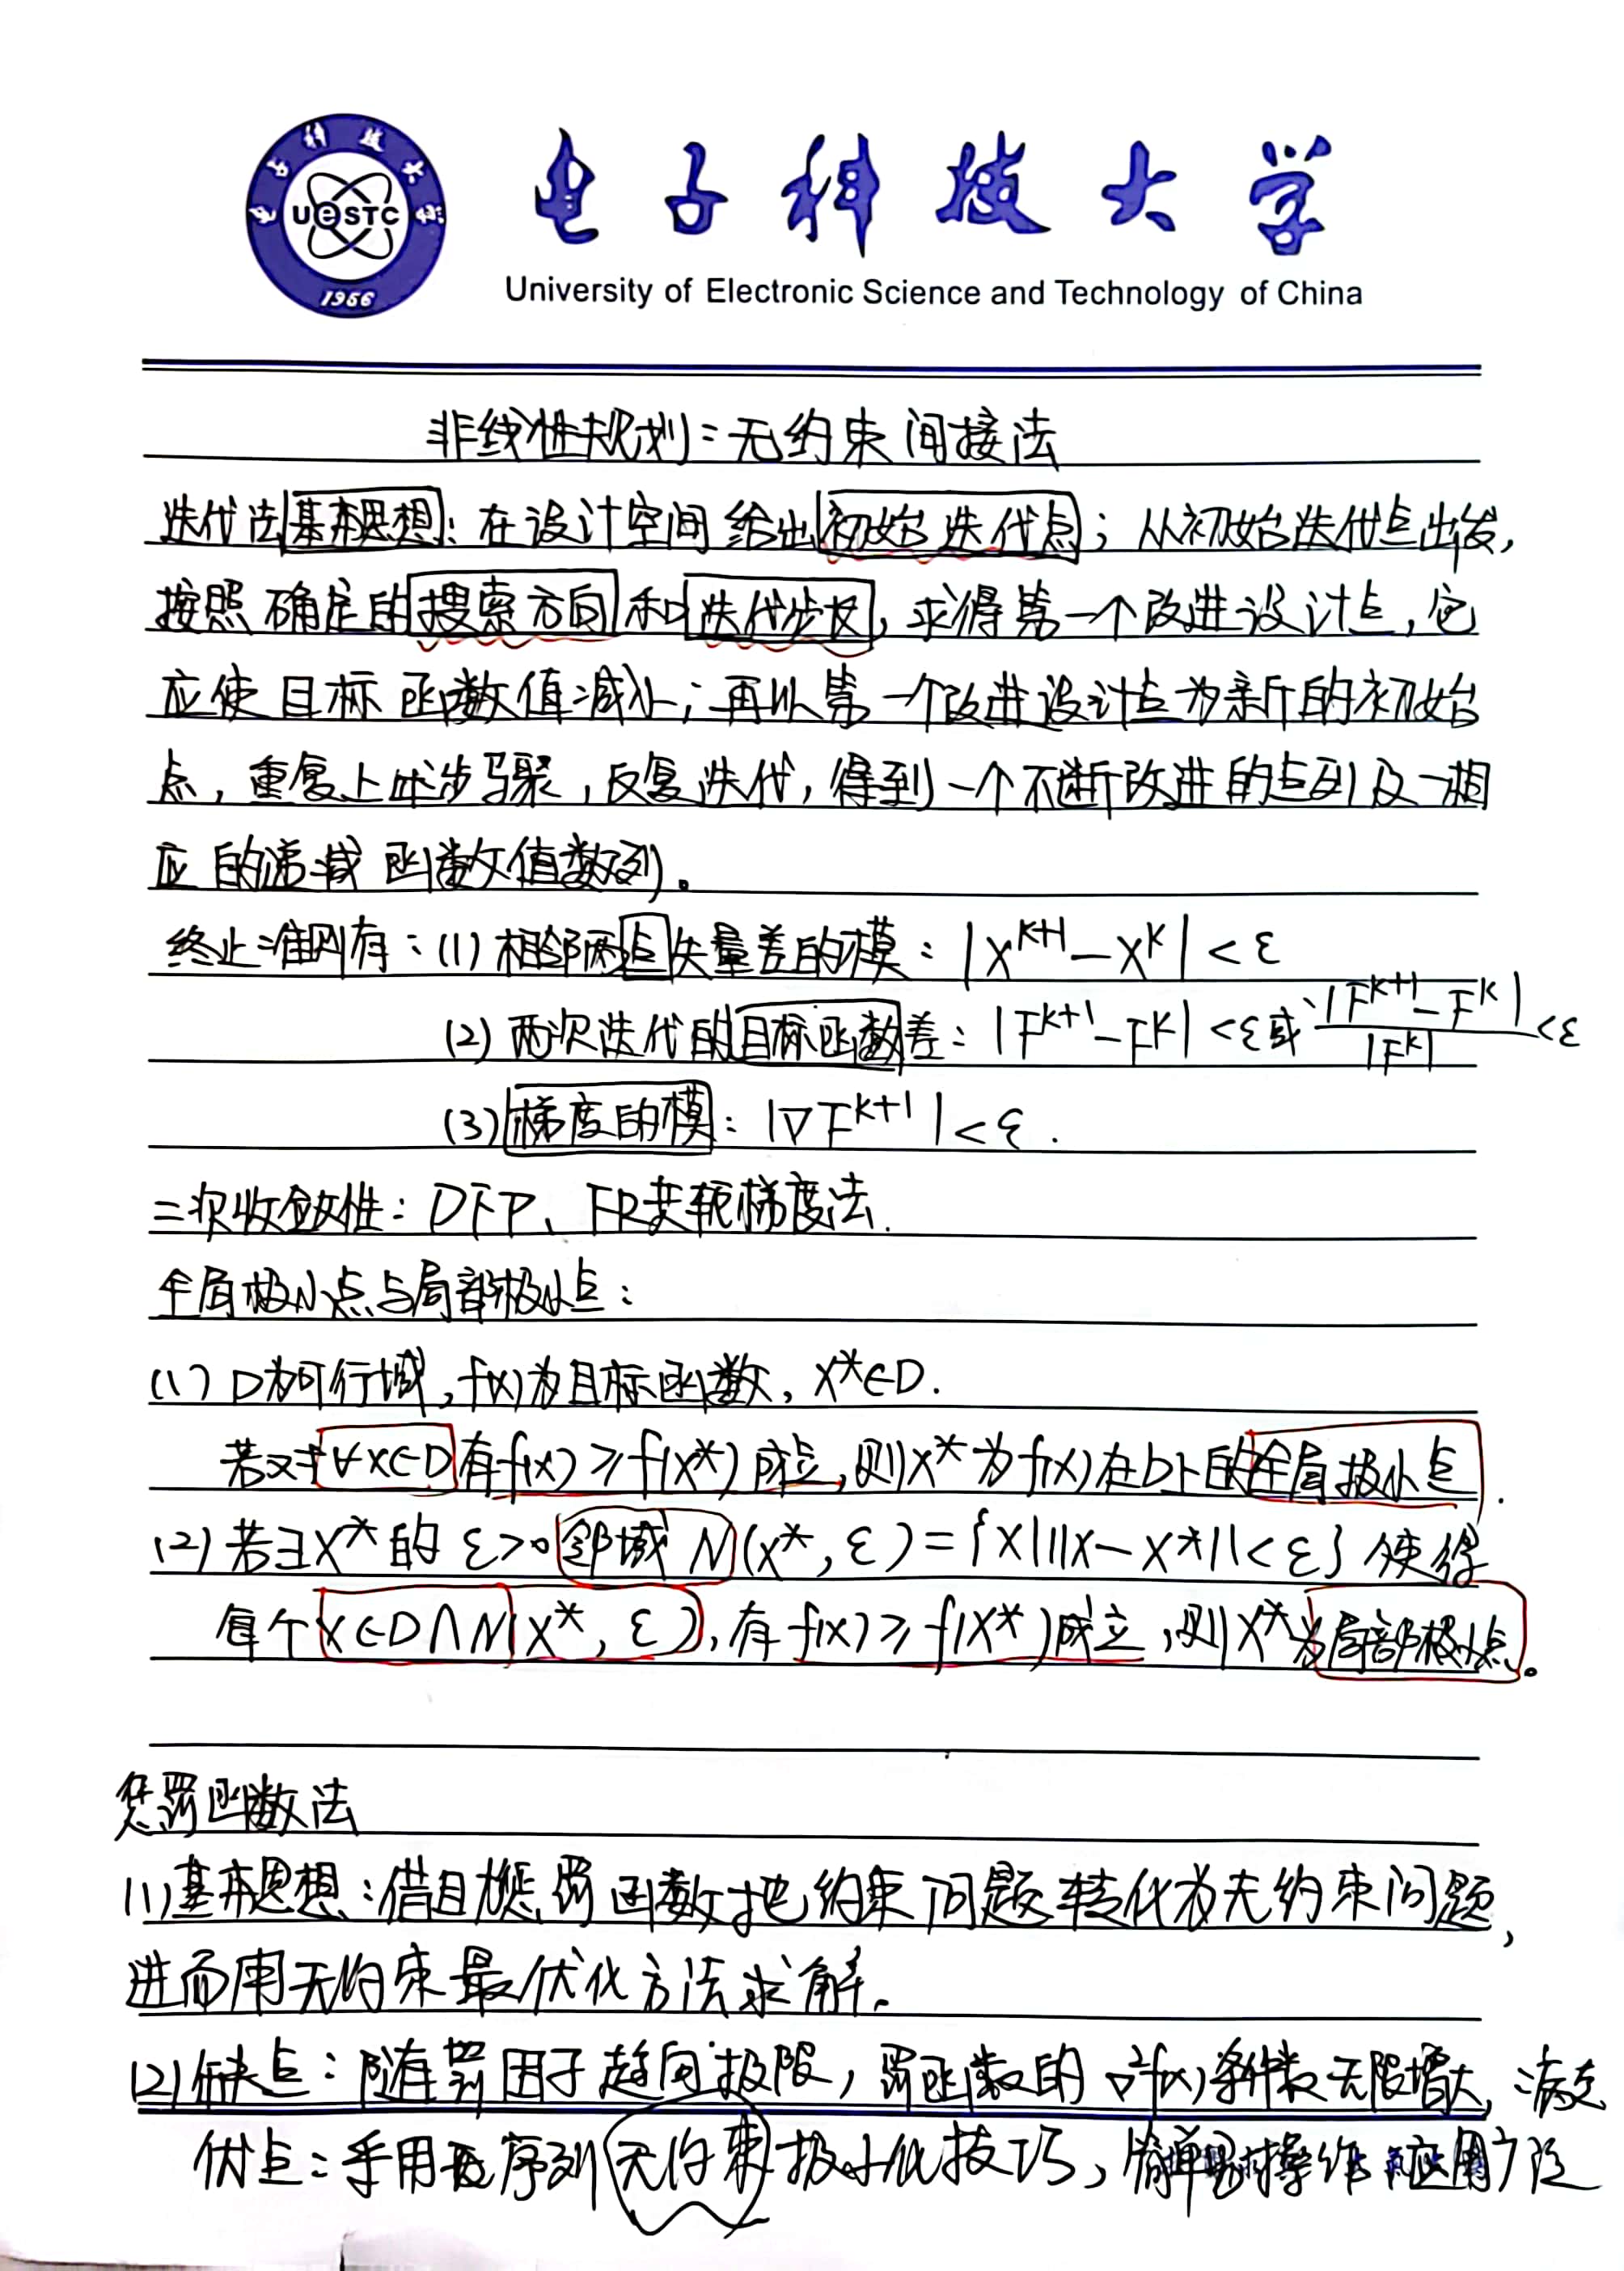 电子科技大学
UESTC
1956
电子科技大学
University of Electronic Science and Technology of China
非线性规划:无约束间接法
迭代法基本思想:在设计空间给出初始迭代点;从初始迭代点出发,
按照确定的搜索方向和迭代步长,求得第一个改进设计点,它
应使目标函数值减小;再以第一个改进设计点为新的初始
点,重复上述步骤,反复迭代,得到一个不断改进的点列及一相
应的递减函数值数列。
终止准则有:(1)相邻两点矢量差的模:|X^{K+1}-X^K|<ε
(2)两次迭代的目标函数差:|F^{K+1}-F^K|<ε或|F^{K+1}-F^K|/|F^K|<ε
(3)梯度的模:|∇F^{K+1}|<ε.
二次收敛性:DFP、FR共轭梯度法.
全局极小点与局部极小点:
(1)D为可行域,f(x)为目标函数,X*∈D.
若对∀X∈D有f(x)≥f(X*)成立,则X*为f(x)在D上的全局极小点.
(2)若∃X*的ε>0邻域N(X*,ε)={X|||X-X*||<ε}使得
每个X∈D∩N(X*,ε),有f(x)≥f(X*)成立,则X*为局部极小点。
惩罚函数法
(1)基本思想:借助惩罚函数把约束问题转化为无约束问题,
进而用无约束最优化方法求解.
(2)缺点:随着罚因子趋向极限,罚函数的∇²f(x)条件数无限增大,病态
优点:采用序列无约束极小化技巧,简单易操作 应用广泛